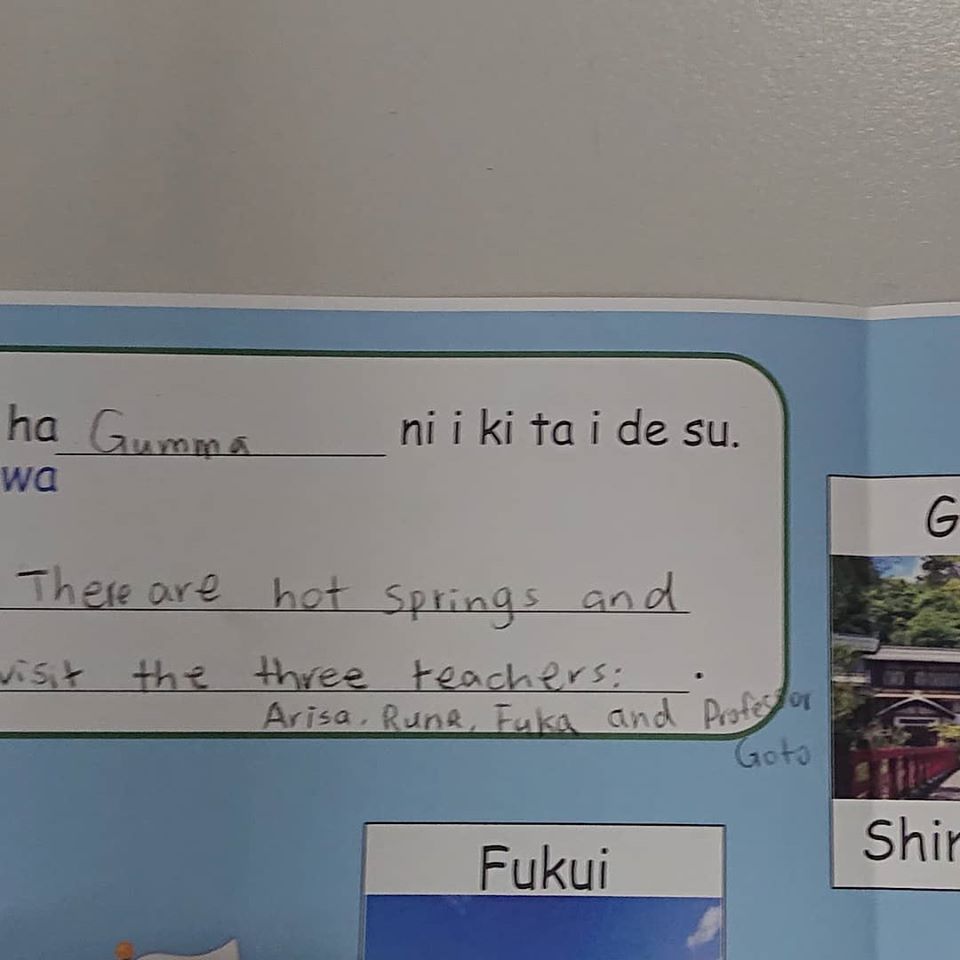 ha Gumma ni i ki ta i de su.
wa
There are hot springs and
visit the three teachers: .
Arisa, Runa, Fuka and Professor
Goto
G
Shir
Fukui